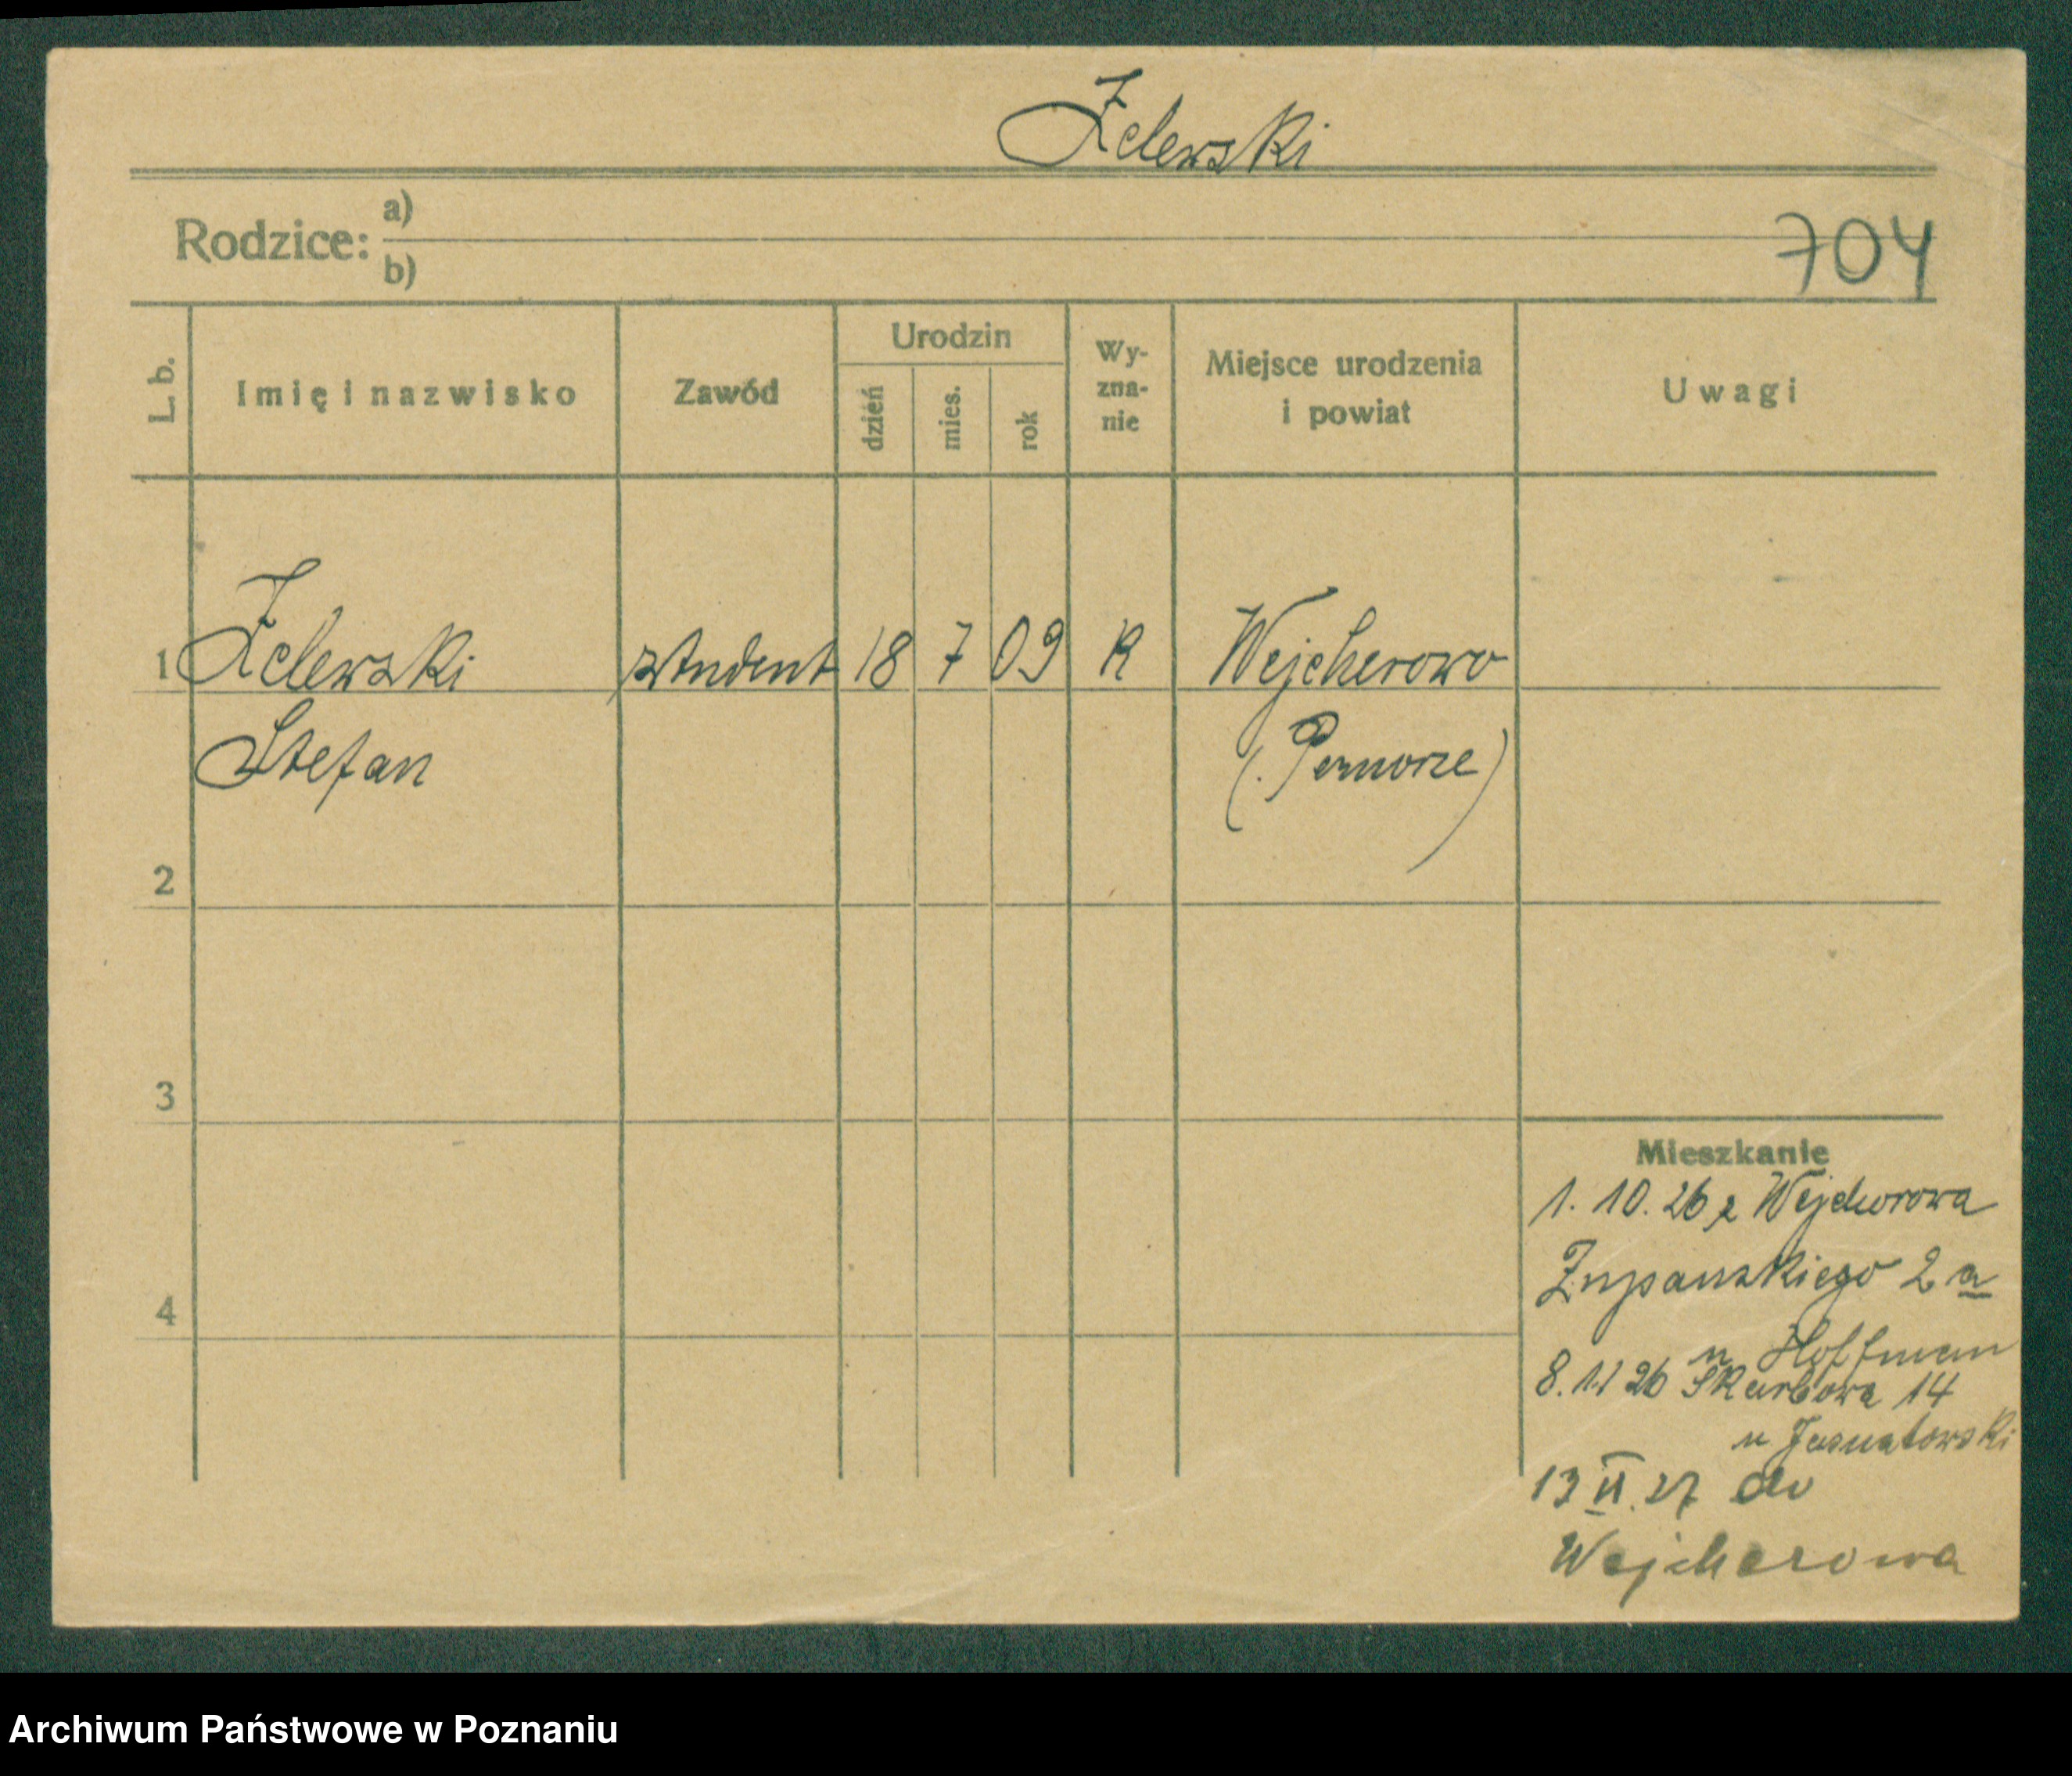 Zelewski
Rodzice: a)
b)
704
L. b.
Imię i nazwisko
Zawód
Urodzin
dzień
mies.
rok
Wy-
zna-
nie
Miejsce urodzenia
i powiat
Uwagi
1 Zelewski student 18 7 09 R Wejcherowo
Stefan (Pomorze)
2
3
4
Mieszkanie
1. 10. 26 z Wejcherowa
Zupanskiego 2 a
u Hoffman
8. 11 26 Skarbowa 14
u
13 II. 27 do
Wejcherowa
Archiwum Państwowe w Poznaniu